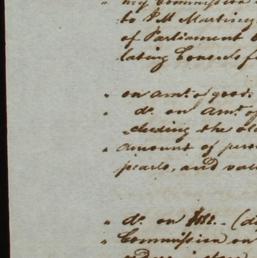 " my Commission
to P.M Martiney
of Parliament
lating Coroners f
" on amt. of good.
" do. on Amt. of
cluding the old
" amount of pers
pearls, and val
" do. on (d
" Commission on